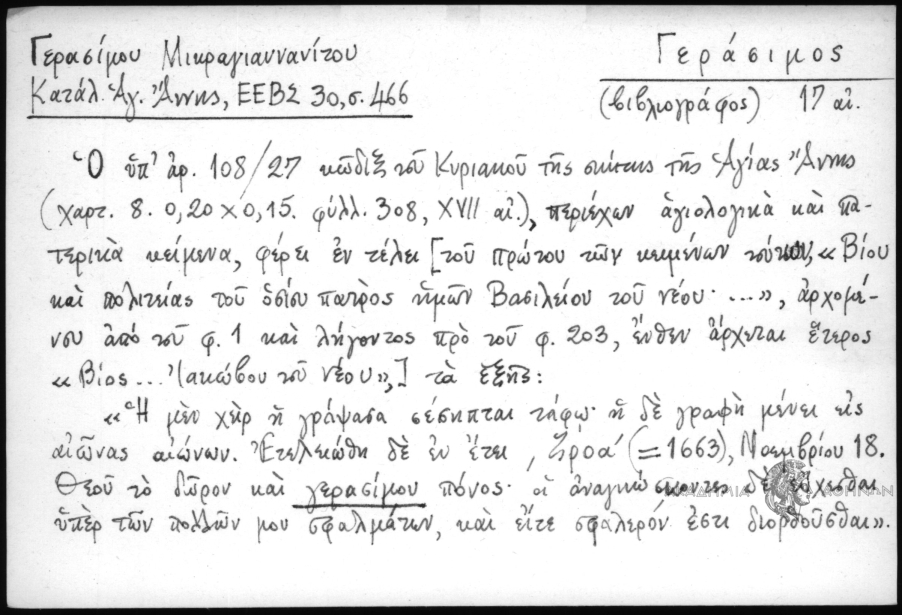 Γερασίμου Μικραγιαννανίτου
Κατάλ. Ἁγ. Ἄννης, ΕΕΒΣ 30, σ. 466
Γεράσιμος
(βιβλιογράφος) 17 αἰ.
Ὁ ὑπ' ἀρ. 108/27 κῶδιξ τοῦ Κυριακοῦ τῆς σκήτης τῆς Ἁγίας Ἄννης
(χαρτ. 8. 0,20 × 0,15. φύλλ. 308, XVII αἰ.), περιέχων ἁγιολογικὰ καὶ πα-
τερικὰ κείμενα, φέρει ἐν τέλει [τοῦ πρώτου τῶν κειμένων τούτων, «Βίου
καὶ πολιτείας τοῦ ὁσίου πατρὸς ἡμῶν Βασιλείου τοῦ νέου· ...», ἀρχομέ-
νου ἀπὸ τοῦ φ. 1 καὶ λήγοντος πρὸ τοῦ φ. 203, ἔνθεν ἄρχεται ἕτερος
«Βίος... Ἰακώβου τοῦ νέου»,] τὰ ἑξῆς:
«Ἡ μὲν χεὶρ ἡ γράψασα σέσηπται τάφῳ· ἡ δὲ γραφὴ μένει εἰς
αἰῶνας αἰώνων. Ἐτελειώθη δὲ ἐν ἔτει ͵ζροα´ (=1663), Νοεμβρίου 18.
Θεοῦ τὸ δῶρον καὶ γερασίμου πόνος· οἱ ἀναγινώσκοντες δὲ εὔχεσθαι
ὑπὲρ τῶν πολλῶν μου σφαλμάτων, καὶ εἴτε σφαλερόν ἐστι διορθοῦσθαι».
ΑΚΑΔΗΜΙΑ ΑΘΗΝΩΝ